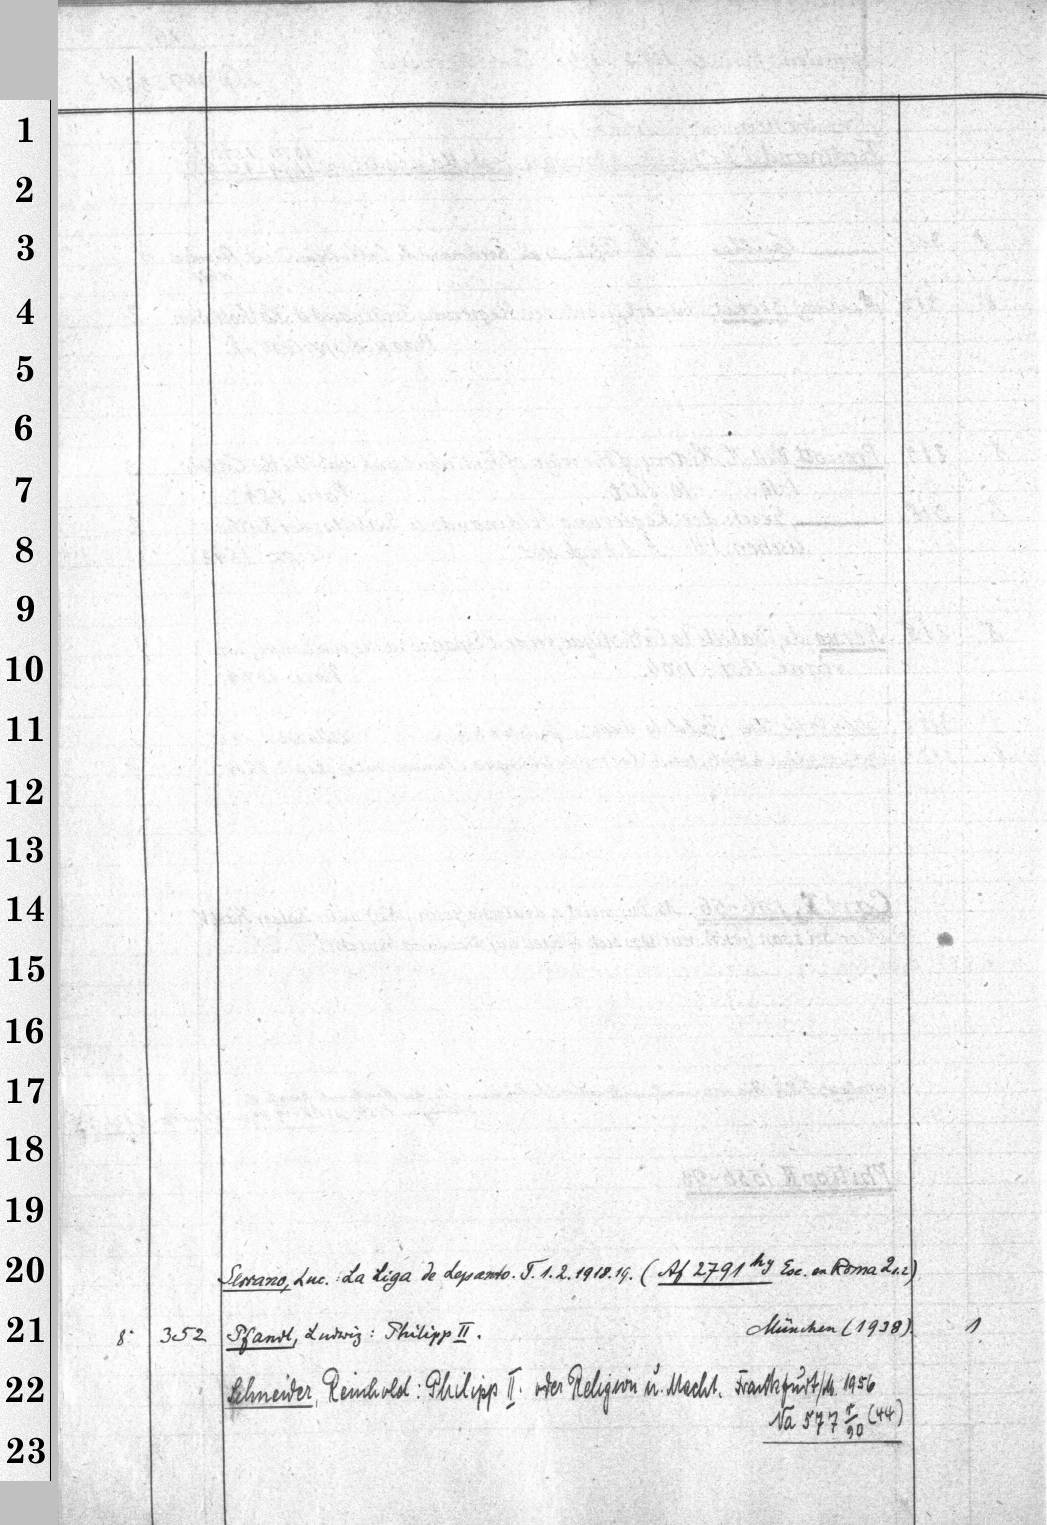 1
2
3
4
5
6
7
8
9
10
11
12
13
14
15
16
17
18
19
20 Serrano, Luc.: La Liga de Lepanto. T. 1.2. 1918.19. (Af 2791 hy Esc. en Roma 2 1.2)
21 8° 352 Pfandl, Ludwig: Philipp II. München (1938). 1
22 Schneider, Reinhold: Philipp II. oder Religion u. Macht. Frankfurt/M. 1956
Na 577 r/90 (44)
23